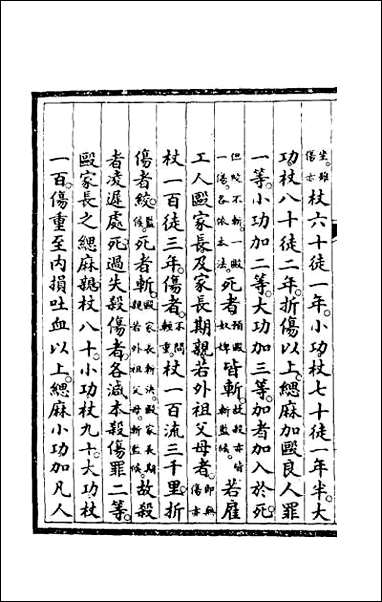 坐雖傷亦。杖六十徒一年。小功杖七十徒一年半。大
功杖八十徒二年。折傷以上。緦麻加毆良人罪
一等。小功加二等。大功加三等。加者加入於死。
但絞不斬。一毆一傷。各依本法。死者預毆奴婢皆斬。故殺亦皆斬監候。若雇
工人毆家長及家長期親若外祖父母者。即無傷亦
杖一百徒三年。傷者。不問輕重。杖一百流三千里。折
傷者絞。監候。死者斬。毆家長斬決。毆家長期親若外祖父母。斬監候。故殺
者凌遲處死。過失殺傷者。各減本殺傷罪二等。
毆家長之緦麻親。杖八十。小功杖九十。大功杖
一百。傷重至內損吐血以上。緦麻小功加凡人